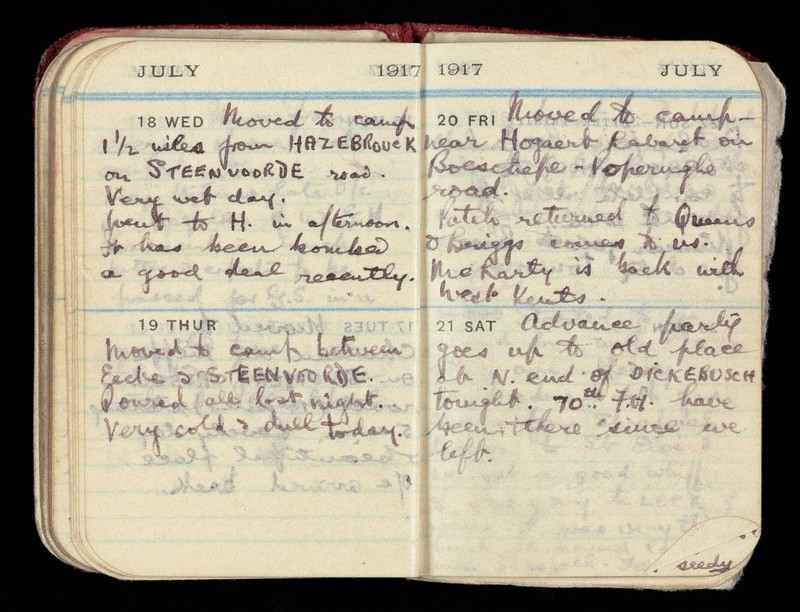 JULY 1917
18 WED Moved to camp
1 1/2 miles from HAZEBROUCK
on STEENVOORDE road.
Very wet day.
Went to H. in afternoon.
It has been bombed
a good deal recently.
19 THUR
Moved to camp between
Eecke & STEENVOORDE.
Poured all last night.
Very cold & dull today.
1917 JULY
20 FRI Moved to camp-
near Hogaert Cabaret on
Boeschepe - Poperinghe
road.
Fitch returned to Queens
& Briggs comes to us.
McCarty is back with
West Kents.
21 SAT Advance party
goes up to old place
at N. end of DICKEBUSCH
tonight. 70th F.A. have
been there since we
left.
seedy